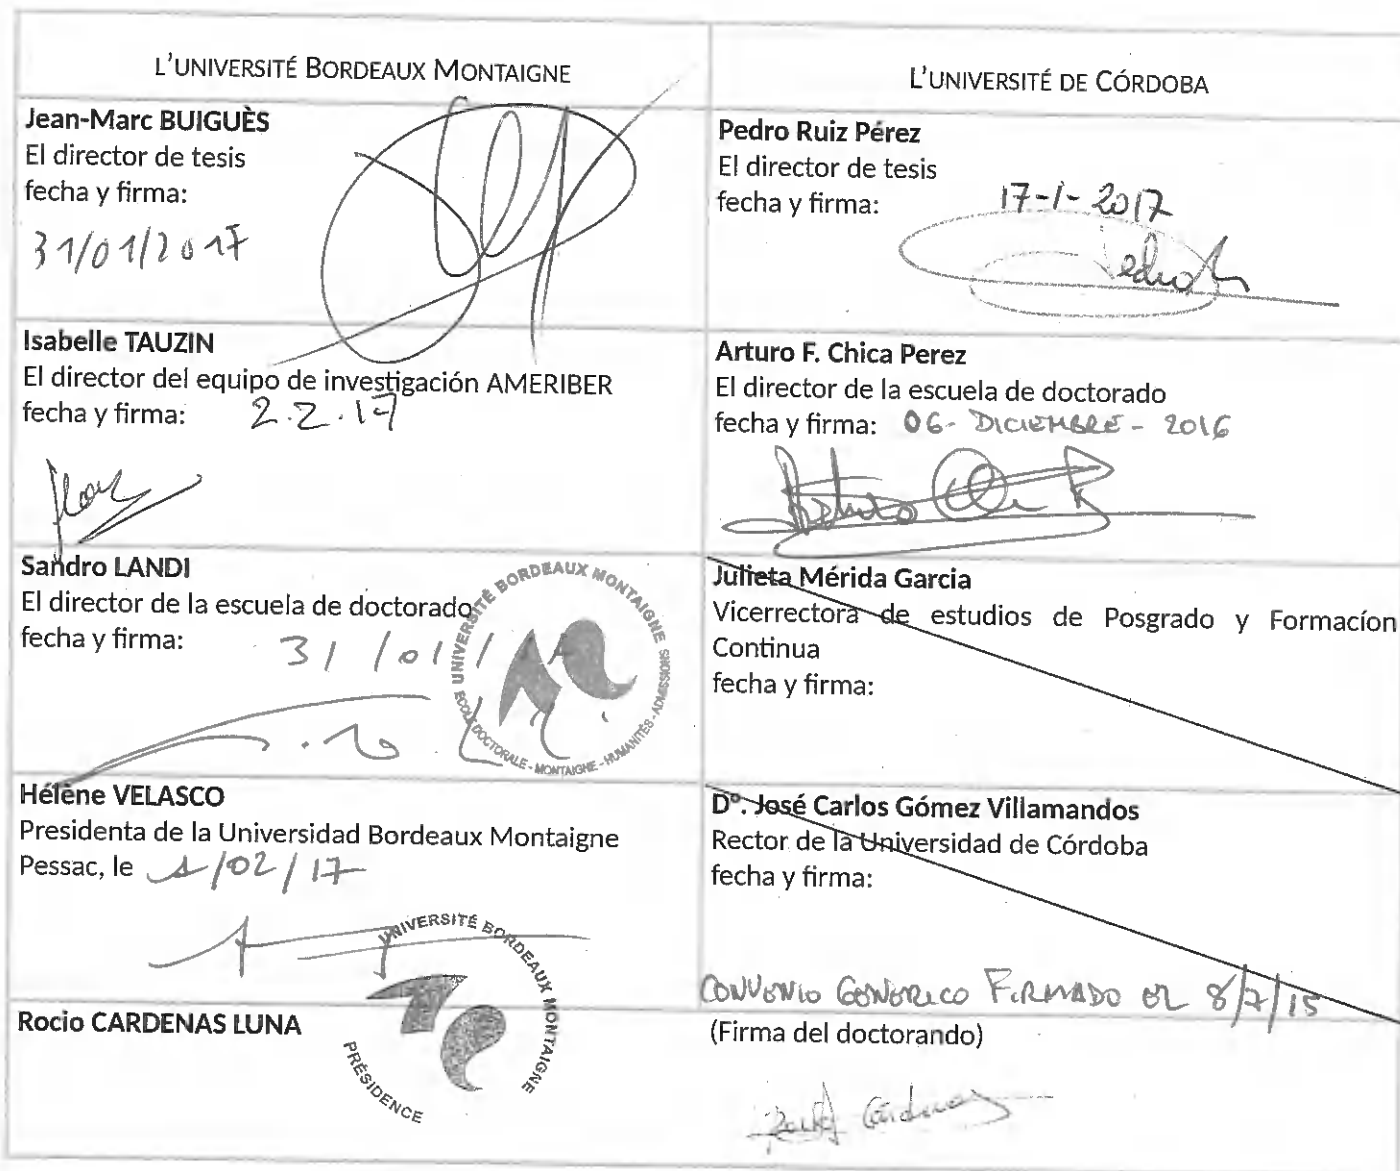 L'UNIVERSITÉ BORDEAUX MONTAIGNE
Jean-Marc BUIGUÈS
El director de tesis
fecha y firma:
31/01/2017
Isabelle TAUZIN
El director del equipo de investigación AMERIBER
fecha y firma: 2.2.17
Sandro LANDI
El director de la escuela de doctorado
fecha y firma: 31/01/
UNIVERSITÉ BORDEAUX MONTAIGNE
ECOLE DOCTORALE - MONTAIGNE - HUMANITÉS - ADMISSIONS
Hélène VELASCO
Presidenta de la Universidad Bordeaux Montaigne
Pessac, le 1/02/17
UNIVERSITÉ BORDEAUX MONTAIGNE
PRÉSIDENCE
Rocio CARDENAS LUNA
L'UNIVERSITÉ DE CÓRDOBA
Pedro Ruiz Pérez
El director de tesis
fecha y firma: 17-1-2017
Pedro
Arturo F. Chica Perez
El director de la escuela de doctorado
fecha y firma: 06-DICIEMBRE-2016
Arturo
Julieta Mérida Garcia
Vicerrectora de estudios de Posgrado y Formacíon
Continua
fecha y firma:
Dº. José Carlos Gómez Villamandos
Rector de la Universidad de Córdoba
fecha y firma:
CONVENIO GENERICO FIRMADO EL 8/7/15
(Firma del doctorando)
Cárdenas